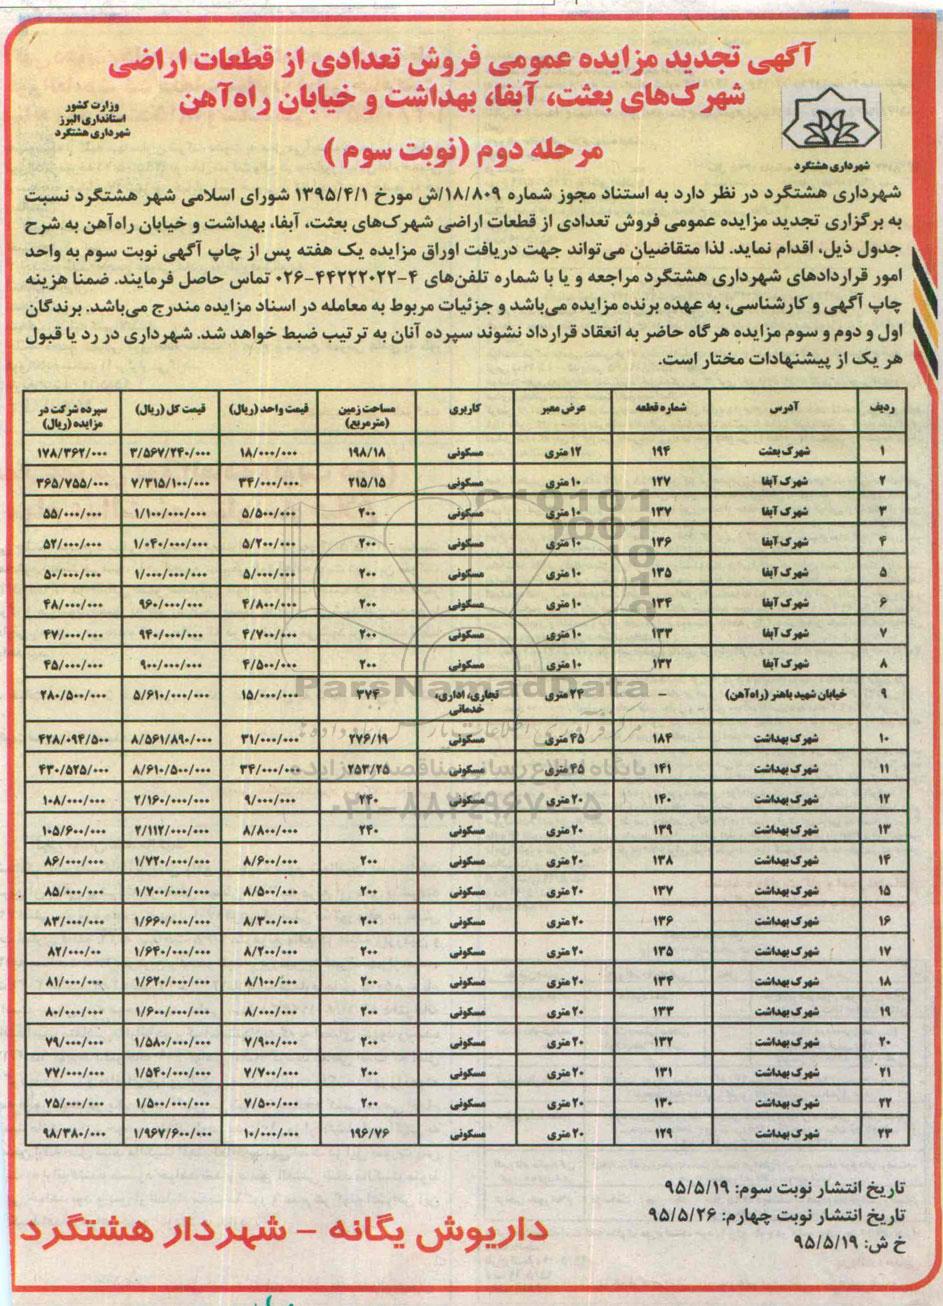 آگهی تجدید مزایده عمومی فروش تعدادی از قطعات اراضی
شهرک‌های بعثت، آبفا، بهداشت و خیابان راه‌آهن
مرحله دوم (نوبت سوم)
وزارت کشور
استانداری البرز
شهرداری هشتگرد
شهرداری هشتگرد
شهرداری هشتگرد در نظر دارد به استناد مجوز شماره ۱۸/۸۰۹/ش مورخ ۱۳۹۵/۴/۱ شورای اسلامی شهر هشتگرد نسبت
به برگزاری تجدید مزایده عمومی فروش تعدادی از قطعات اراضی شهرک‌های بعثت، آبفا، بهداشت و خیابان راه‌آهن به شرح
جدول ذیل، اقدام نماید. لذا متقاضیان می‌تواند جهت دریافت اوراق مزایده یک هفته پس از چاپ آگهی نوبت سوم به واحد
امور قراردادهای شهرداری هشتگرد مراجعه و یا با شماره تلفن‌های ۴-۴۴۲۲۲۰۲۲-۰۲۶ تماس حاصل فرمایند. ضمنا هزینه
چاپ آگهی و کارشناسی، به عهده برنده مزایده می‌باشد و جزئیات مربوط به معامله در اسناد مزایده مندرج می‌باشد. برندگان
اول و دوم و سوم مزایده هرگاه حاضر به انعقاد قرارداد نشوند سپرده آنان به ترتیب ضبط خواهد شد. شهرداری در رد یا قبول
هر یک از پیشنهادات مختار است.
ردیف آدرس شماره قطعه عرض معبر کاربری مساحت زمین (مترمربع) قیمت واحد (ریال) قیمت کل (ریال) سپرده شرکت در مزایده (ریال)
۱ شهرک بعثت ۱۹۴ ۱۲ متری مسکونی ۱۹۸/۱۸ ۱۸/۰۰۰/۰۰۰ ۳/۵۶۷/۲۴۰/۰۰۰ ۱۷۸/۳۶۲/۰۰۰
۲ شهرک آبفا ۱۲۷ ۱۰ متری مسکونی ۲۱۵/۱۵ ۳۴/۰۰۰/۰۰۰ ۷/۳۱۵/۱۰۰/۰۰۰ ۳۶۵/۷۵۵/۰۰۰
۳ شهرک آبفا ۱۳۷ ۱۰ متری مسکونی ۲۰۰ ۵/۵۰۰/۰۰۰ ۱/۱۰۰/۰۰۰/۰۰۰ ۵۵/۰۰۰/۰۰۰
۴ شهرک آبفا ۱۳۶ ۱۰ متری مسکونی ۲۰۰ ۵/۲۰۰/۰۰۰ ۱/۰۴۰/۰۰۰/۰۰۰ ۵۲/۰۰۰/۰۰۰
۵ شهرک آبفا ۱۳۵ ۱۰ متری مسکونی ۲۰۰ ۵/۰۰۰/۰۰۰ ۱/۰۰۰/۰۰۰/۰۰۰ ۵۰/۰۰۰/۰۰۰
۶ شهرک آبفا ۱۳۴ ۱۰ متری مسکونی ۲۰۰ ۴/۸۰۰/۰۰۰ ۹۶۰/۰۰۰/۰۰۰ ۴۸/۰۰۰/۰۰۰
۷ شهرک آبفا ۱۳۳ ۱۰ متری مسکونی ۲۰۰ ۴/۷۰۰/۰۰۰ ۹۴۰/۰۰۰/۰۰۰ ۴۷/۰۰۰/۰۰۰
۸ شهرک آبفا ۱۳۲ ۱۰ متری مسکونی ۲۰۰ ۴/۵۰۰/۰۰۰ ۹۰۰/۰۰۰/۰۰۰ ۴۵/۰۰۰/۰۰۰
۹ خیابان شهید باهنر (راه‌آهن) – ۲۴ متری تجاری، اداری، خدماتی ۳۷۴ ۱۵/۰۰۰/۰۰۰ ۵/۶۱۰/۰۰۰/۰۰۰ ۲۸۰/۵۰۰/۰۰۰
۱۰ شهرک بهداشت ۱۸۴ ۴۵ متری مسکونی ۲۷۶/۱۹ ۳۱/۰۰۰/۰۰۰ ۸/۵۶۱/۸۹۰/۰۰۰ ۴۲۸/۰۹۴/۵۰۰
۱۱ شهرک بهداشت ۱۴۱ ۴۵ متری مسکونی ۲۵۳/۲۵ ۳۴/۰۰۰/۰۰۰ ۸/۶۱۰/۵۰۰/۰۰۰ ۴۳۰/۵۲۵/۰۰۰
۱۲ شهرک بهداشت ۱۴۰ ۲۰ متری مسکونی ۲۴۰ ۹/۰۰۰/۰۰۰ ۲/۱۶۰/۰۰۰/۰۰۰ ۱۰۸/۰۰۰/۰۰۰
۱۳ شهرک بهداشت ۱۳۹ ۲۰ متری مسکونی ۲۴۰ ۸/۸۰۰/۰۰۰ ۲/۱۱۲/۰۰۰/۰۰۰ ۱۰۵/۶۰۰/۰۰۰
۱۴ شهرک بهداشت ۱۳۸ ۲۰ متری مسکونی ۲۰۰ ۸/۶۰۰/۰۰۰ ۱/۷۲۰/۰۰۰/۰۰۰ ۸۶/۰۰۰/۰۰۰
۱۵ شهرک بهداشت ۱۳۷ ۲۰ متری مسکونی ۲۰۰ ۸/۵۰۰/۰۰۰ ۱/۷۰۰/۰۰۰/۰۰۰ ۸۵/۰۰۰/۰۰۰
۱۶ شهرک بهداشت ۱۳۶ ۲۰ متری مسکونی ۲۰۰ ۸/۳۰۰/۰۰۰ ۱/۶۶۰/۰۰۰/۰۰۰ ۸۳/۰۰۰/۰۰۰
۱۷ شهرک بهداشت ۱۳۵ ۲۰ متری مسکونی ۲۰۰ ۸/۲۰۰/۰۰۰ ۱/۶۴۰/۰۰۰/۰۰۰ ۸۲/۰۰۰/۰۰
۱۸ شهرک بهداشت ۱۳۴ ۲۰ متری مسکونی ۲۰۰ ۸/۱۰۰/۰۰۰ ۱/۶۲۰/۰۰۰/۰۰۰ ۸۱/۰۰۰/۰۰۰
۱۹ شهرک بهداشت ۱۳۳ ۲۰ متری مسکونی ۲۰۰ ۸/۰۰۰/۰۰۰ ۱/۶۰۰/۰۰۰/۰۰۰ ۸۰/۰۰۰/۰۰۰
۲۰ شهرک بهداشت ۱۳۲ ۲۰ متری مسکونی ۲۰۰ ۷/۹۰۰/۰۰۰ ۱/۵۸۰/۰۰۰/۰۰۰ ۷۹/۰۰۰/۰۰۰
۲۱ شهرک بهداشت ۱۳۱ ۲۰ متری مسکونی ۲۰۰ ۷/۷۰۰/۰۰۰ ۱/۵۴۰/۰۰۰/۰۰۰ ۷۷/۰۰۰/۰۰۰
۲۲ شهرک بهداشت ۱۳۰ ۲۰ متری مسکونی ۲۰۰ ۷/۵۰۰/۰۰۰ ۱/۵۰۰/۰۰۰/۰۰۰ ۷۵/۰۰۰/۰۰۰
۲۳ شهرک بهداشت ۱۲۹ ۲۰ متری مسکونی ۱۹۶/۷۶ ۱۰/۰۰۰/۰۰۰ ۱/۹۶۷/۶۰۰/۰۰۰ ۹۸/۳۸۰/۰۰۰
ParsNamadData
تاریخ انتشار نوبت سوم: ۹۵/۵/۱۹
تاریخ انتشار نوبت چهارم: ۹۵/۵/۲۶
خ ش: ۹۵/۵/۱۹
داریوش یگانه – شهردار هشتگرد